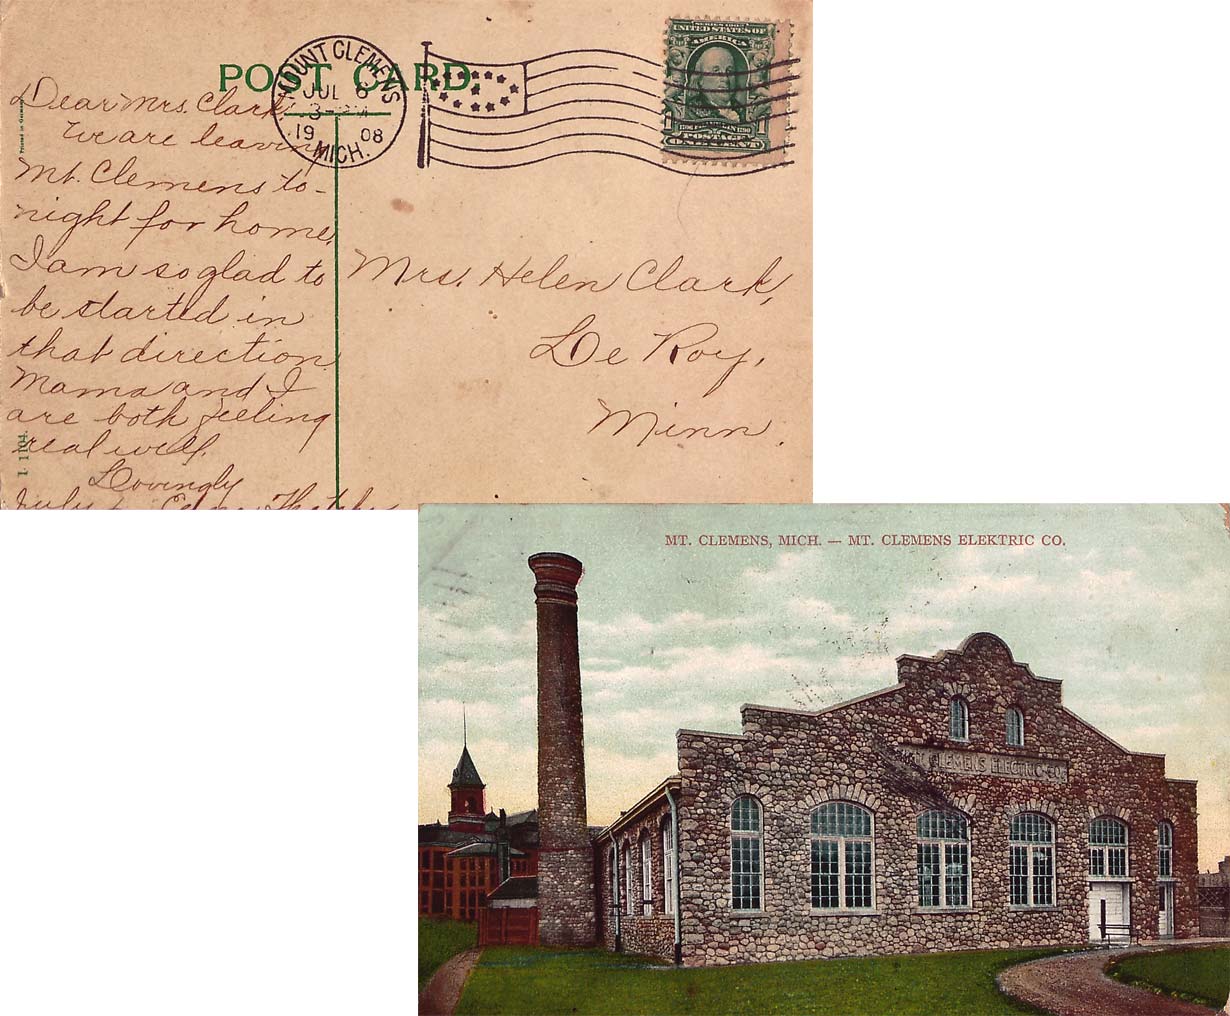 POST CARD.
MOUNT CLEMENS
JUL 6
3-
19 08
MICH.
SERIES 1902
UNITED STATES OF
AMERICA
1 POSTAGE 1
ONE CENT
Printed in Germany
Dear Mrs. Clark:
We are leaving
Mt. Clemens to-
night for home.
I am so glad to
be started in
that direction
Mama and I
are both feeling
real well.
Lovingly
July
I. 1104.
Mrs. Helen Clark,
Le Roy,
Minn.
MT. CLEMENS, MICH. — MT. CLEMENS ELEKTRIC CO.
MT CLEMENS ELECTRIC CO.